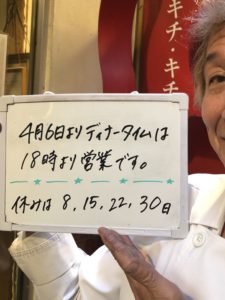 キチ・キチ
4月6日よりディナータイムは
18時より営業です。
休みは 8, 15, 22, 30日